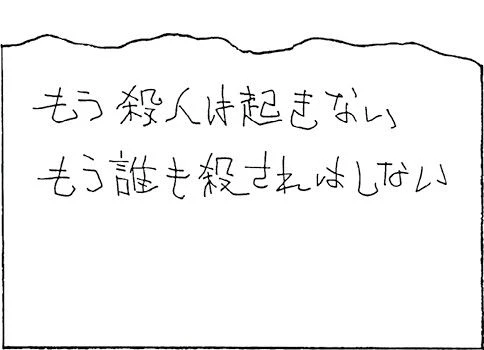 もう殺人は起きない
もう誰も殺されはしない